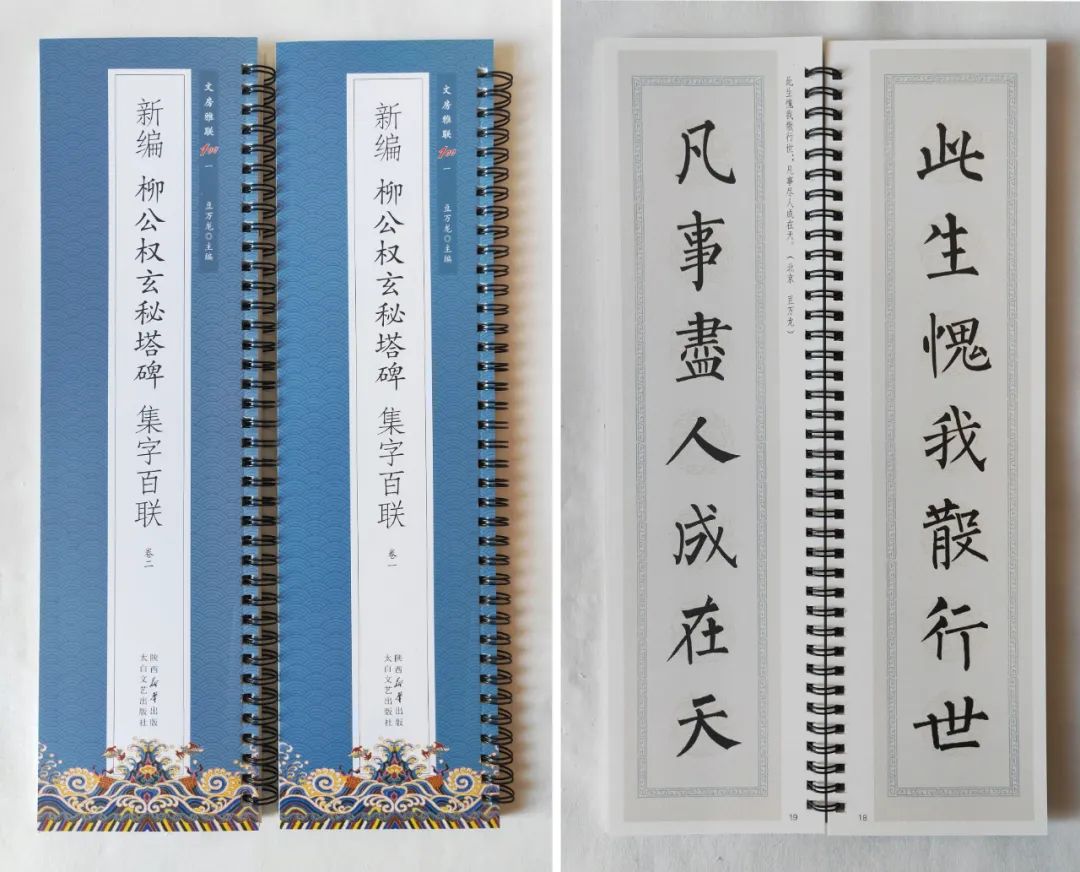 文房雅联 一
万龙◎主编
新编 柳公权玄秘塔碑 集字百联 卷二
陕西新华出版
太白文艺出版社
文房雅联 一
万龙◎主编
新编 柳公权玄秘塔碑 集字百联 卷一
陕西新华出版
太白文艺出版社
此生愧我散行世
18
此生愧我散行世；凡事尽人成在天。（北京 万龙）
凡事盡人成在天
19